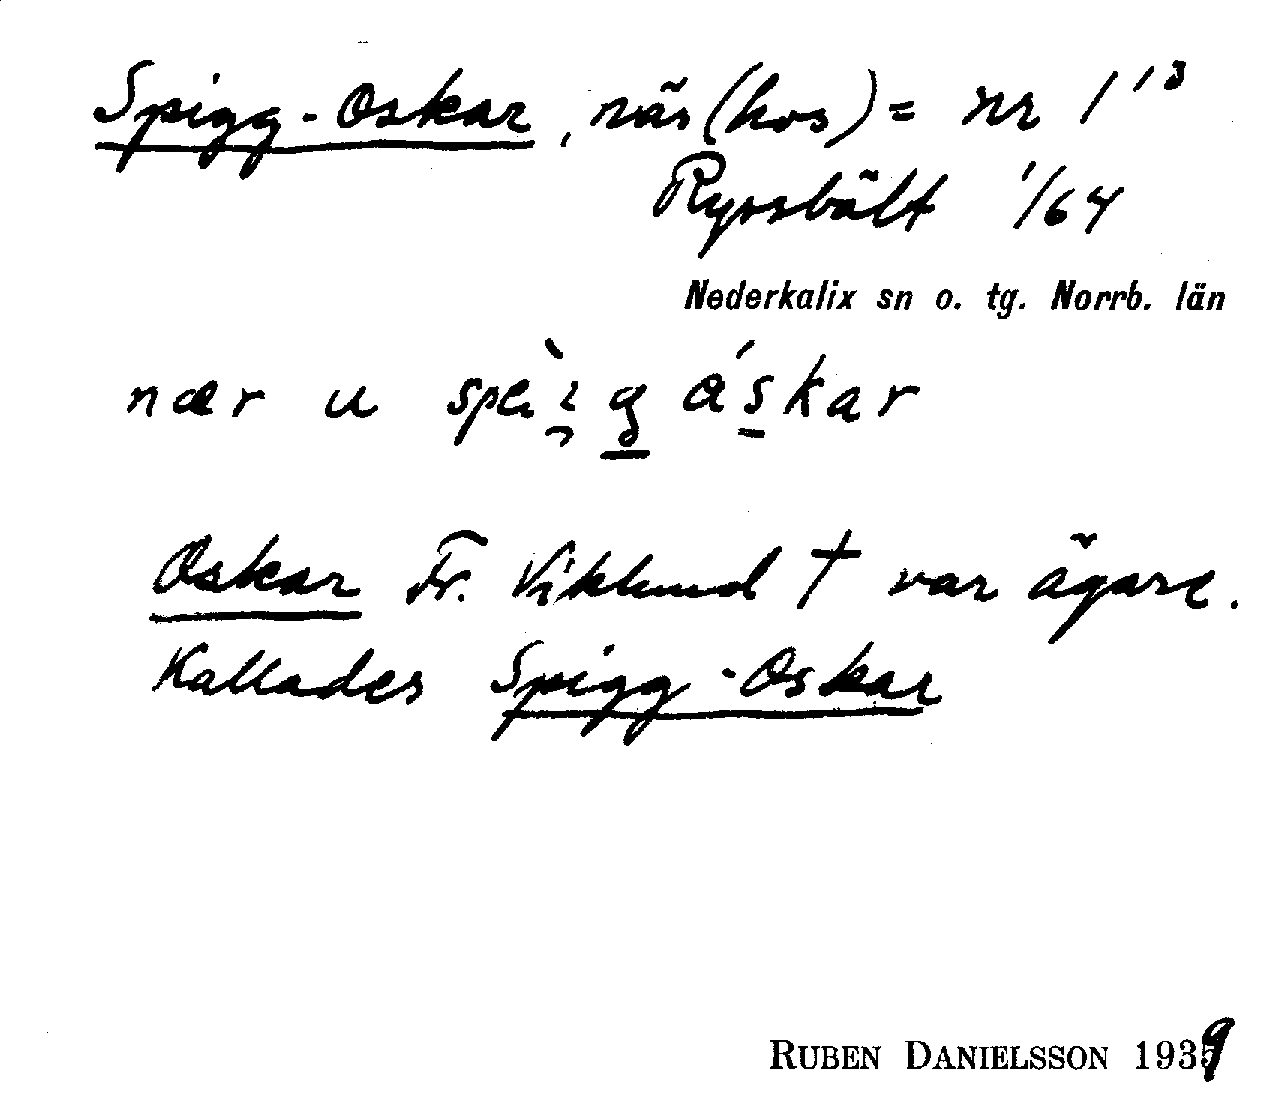 Spigg-Oskar, när (hos) = nr 1 13
Ryssbält 1/64
Nederkalix sn o. tg. Norrb. län
nær u
åskar
Oskar Fr. Viklund † var ägare.
Kallades Spigg-Oskar
RUBEN DANIELSSON 1939